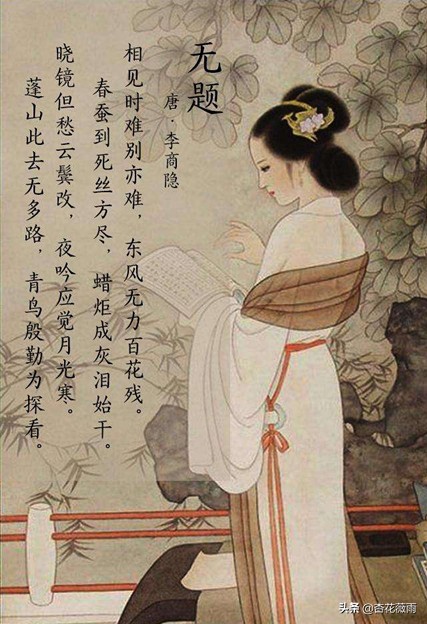 无题
唐·李商隐
相见时难别亦难，东风无力百花残。
春蚕到死丝方尽，蜡炬成灰泪始干。
晓镜但愁云鬓改，夜吟应觉月光寒。
蓬山此去无多路，青鸟殷勤为探看。
头条 @杏花薇雨